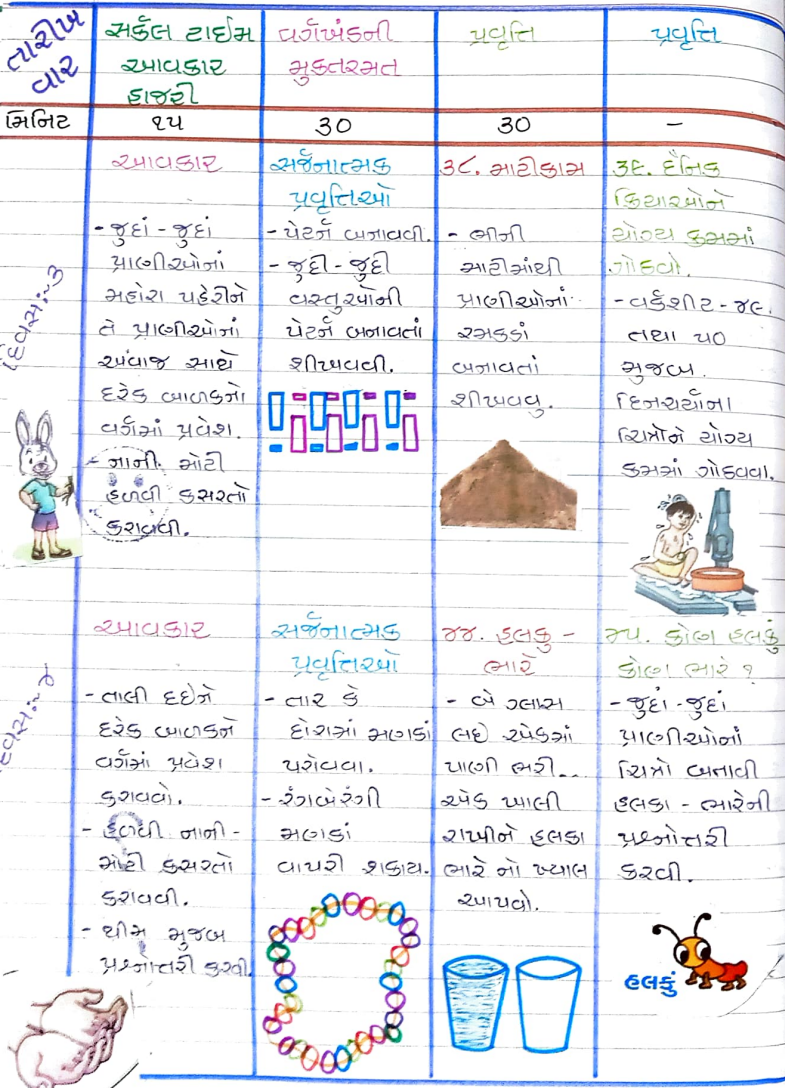 તારીખ
વાર
સર્કલ ટાઈમ
આવકાર
હાજરી
વર્ગખંડની
મુક્તરમત
પ્રવૃત્તિ
પ્રવૃત્તિ
મિનિટ
૧૫
30
30
-
દિવસ:-૩
આવકાર
- જુદાં - જુદાં
પ્રાણીઓનાં
મહોરા પહેરીને
તે પ્રાણીઓનાં
અવાજ સાથે
દરેક બાળકનો
વર્ગમાં પ્રવેશ.
- નાની મોટી
હળવી કસરતો
કરાવવી.
સર્જનાત્મક
પ્રવૃત્તિઓ
- પેટર્ન બનાવવી.
- જુદી - જુદી
વસ્તુઓની
પેટર્ન બનાવતાં
શીખવવી.
૩૮. માટીકામ
- ભીની
માટીમાંથી
પ્રાણીઓનાં
રમકડાં
બનાવતાં
શીખવવુ.
૩૯. દૈનિક
ક્રિયાઓને
યોગ્ય ક્રમમાં
ગોઠવો.
- વર્કશીટ - ૪૯.
તથા ૫૦
મુજબ.
દિનચર્યાના
ચિત્રોને યોગ્ય
ક્રમમાં ગોઠવવા.
દિવસ:-૪
આવકાર
- તાલી દઈને
દરેક બાળકને
વર્ગમાં પ્રવેશ
કરાવવો.
- હળવી નાની -
મોટી કસરતો
કરાવવી.
- થીમ મુજબ
પ્રશ્નોત્તરી કરવી.
સર્જનાત્મક
પ્રવૃત્તિઓ
- તાર કે
દોરામાં મણકાં
પરોવવા.
- રંગબેરંગી
મણકાં
વાપરી શકાય.
૪૪. હલકુ -
ભારે
- બે ગ્લાસ
લઈ એકમાં
પાણી ભરી..
એક ખાલી
રાખીને હલકા
ભારે નો ખ્યાલ
આપવો.
૪૫. કોણ હલકું
કોણ ભારે ?
- જુદાં - જુદાં
પ્રાણીઓનાં
ચિત્રો બતાવી
હલકા - ભારેની
પ્રશ્નોત્તરી
કરવી.
હલકું